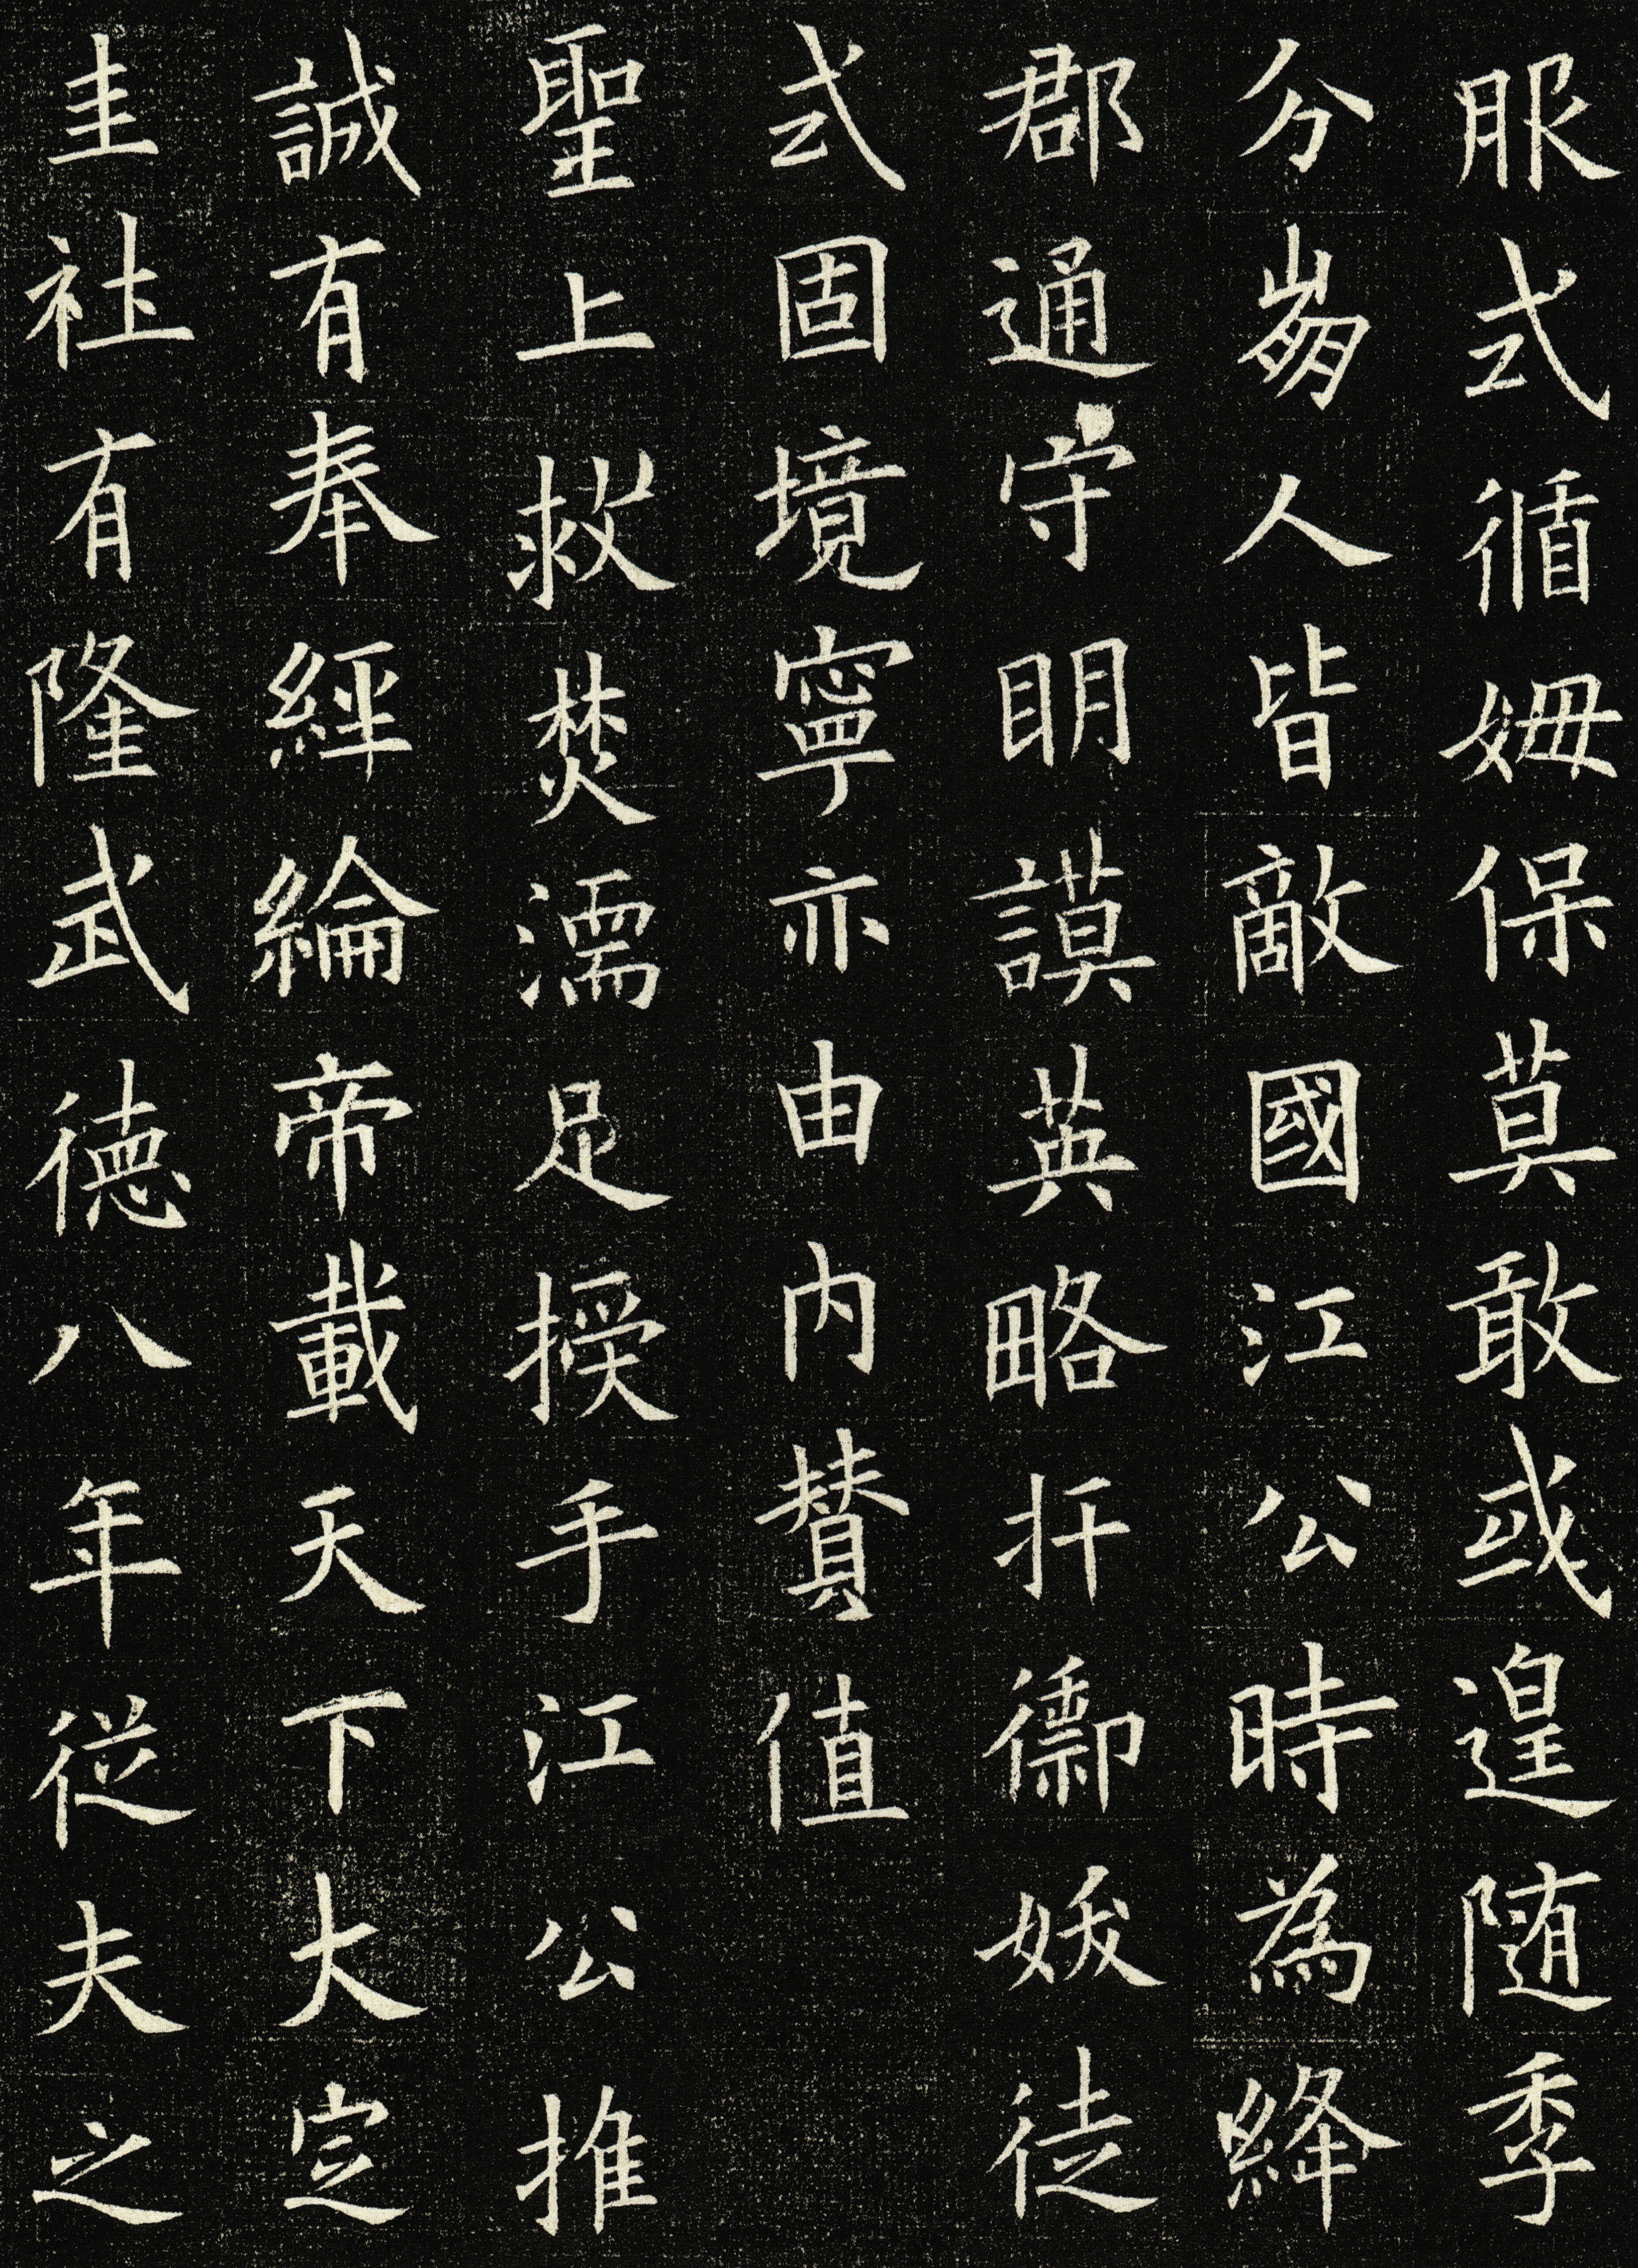 服式循姆保莫敢或遑随季
分崩人皆敵國江公時為絳
郡通守明謨英略扞禦妖徒
式固境寧亦由内賛值
聖上救焚濡足授手江公推
誠有奉經綸帝載天下大定
圭社有隆武德八年從夫之